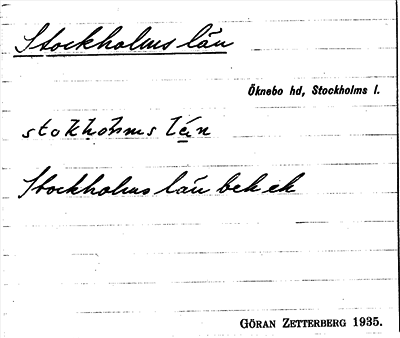 Stockholms län
Öknebo hd, Stockholms l.
stokhoħms lä̱n
Stockholms län bek ek
GÖRAN ZETTERBERG 1935.